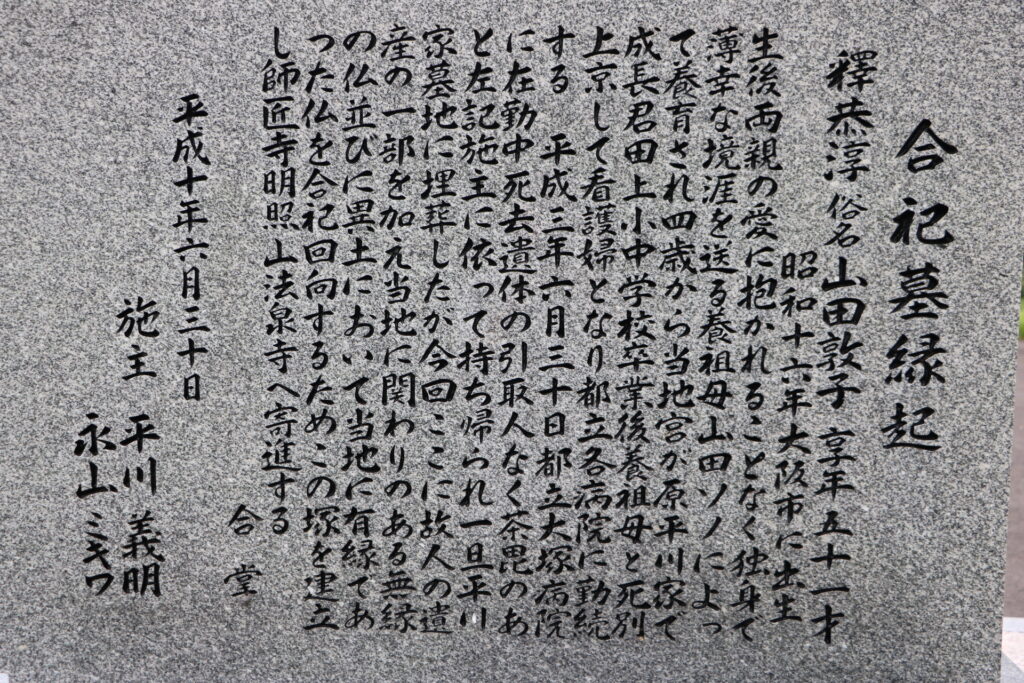 合祀墓縁起
釋恭淳 俗名 山田敦子 享年五十一才
昭和十六年大阪市に出生
生後両親の愛に抱かれることなく独身で
薄幸な境涯を送る養祖母山田ソノによっ
て養育され四歳から当地宮が原平川家で
成長君田上小中学校卒業後養祖母と死別
上京して看護婦となり都立各病院に勤続
する 平成三年六月三十日都立大塚病院
に在勤中死去遺体の引取人なく荼毘のあ
と左記施主に依って持ち帰られ一旦平川
家墓地に埋葬したが今回ここに故人の遺
産の一部を加え当地に関わりのある無縁
の仏並びに異土において当地に有縁であ
った仏を合祀回向するためこの塚を建立
し師匠寺明照山法泉寺へ寄進する
合堂
平成十年六月三十日
施主 平川 義明
永山 ミキワ